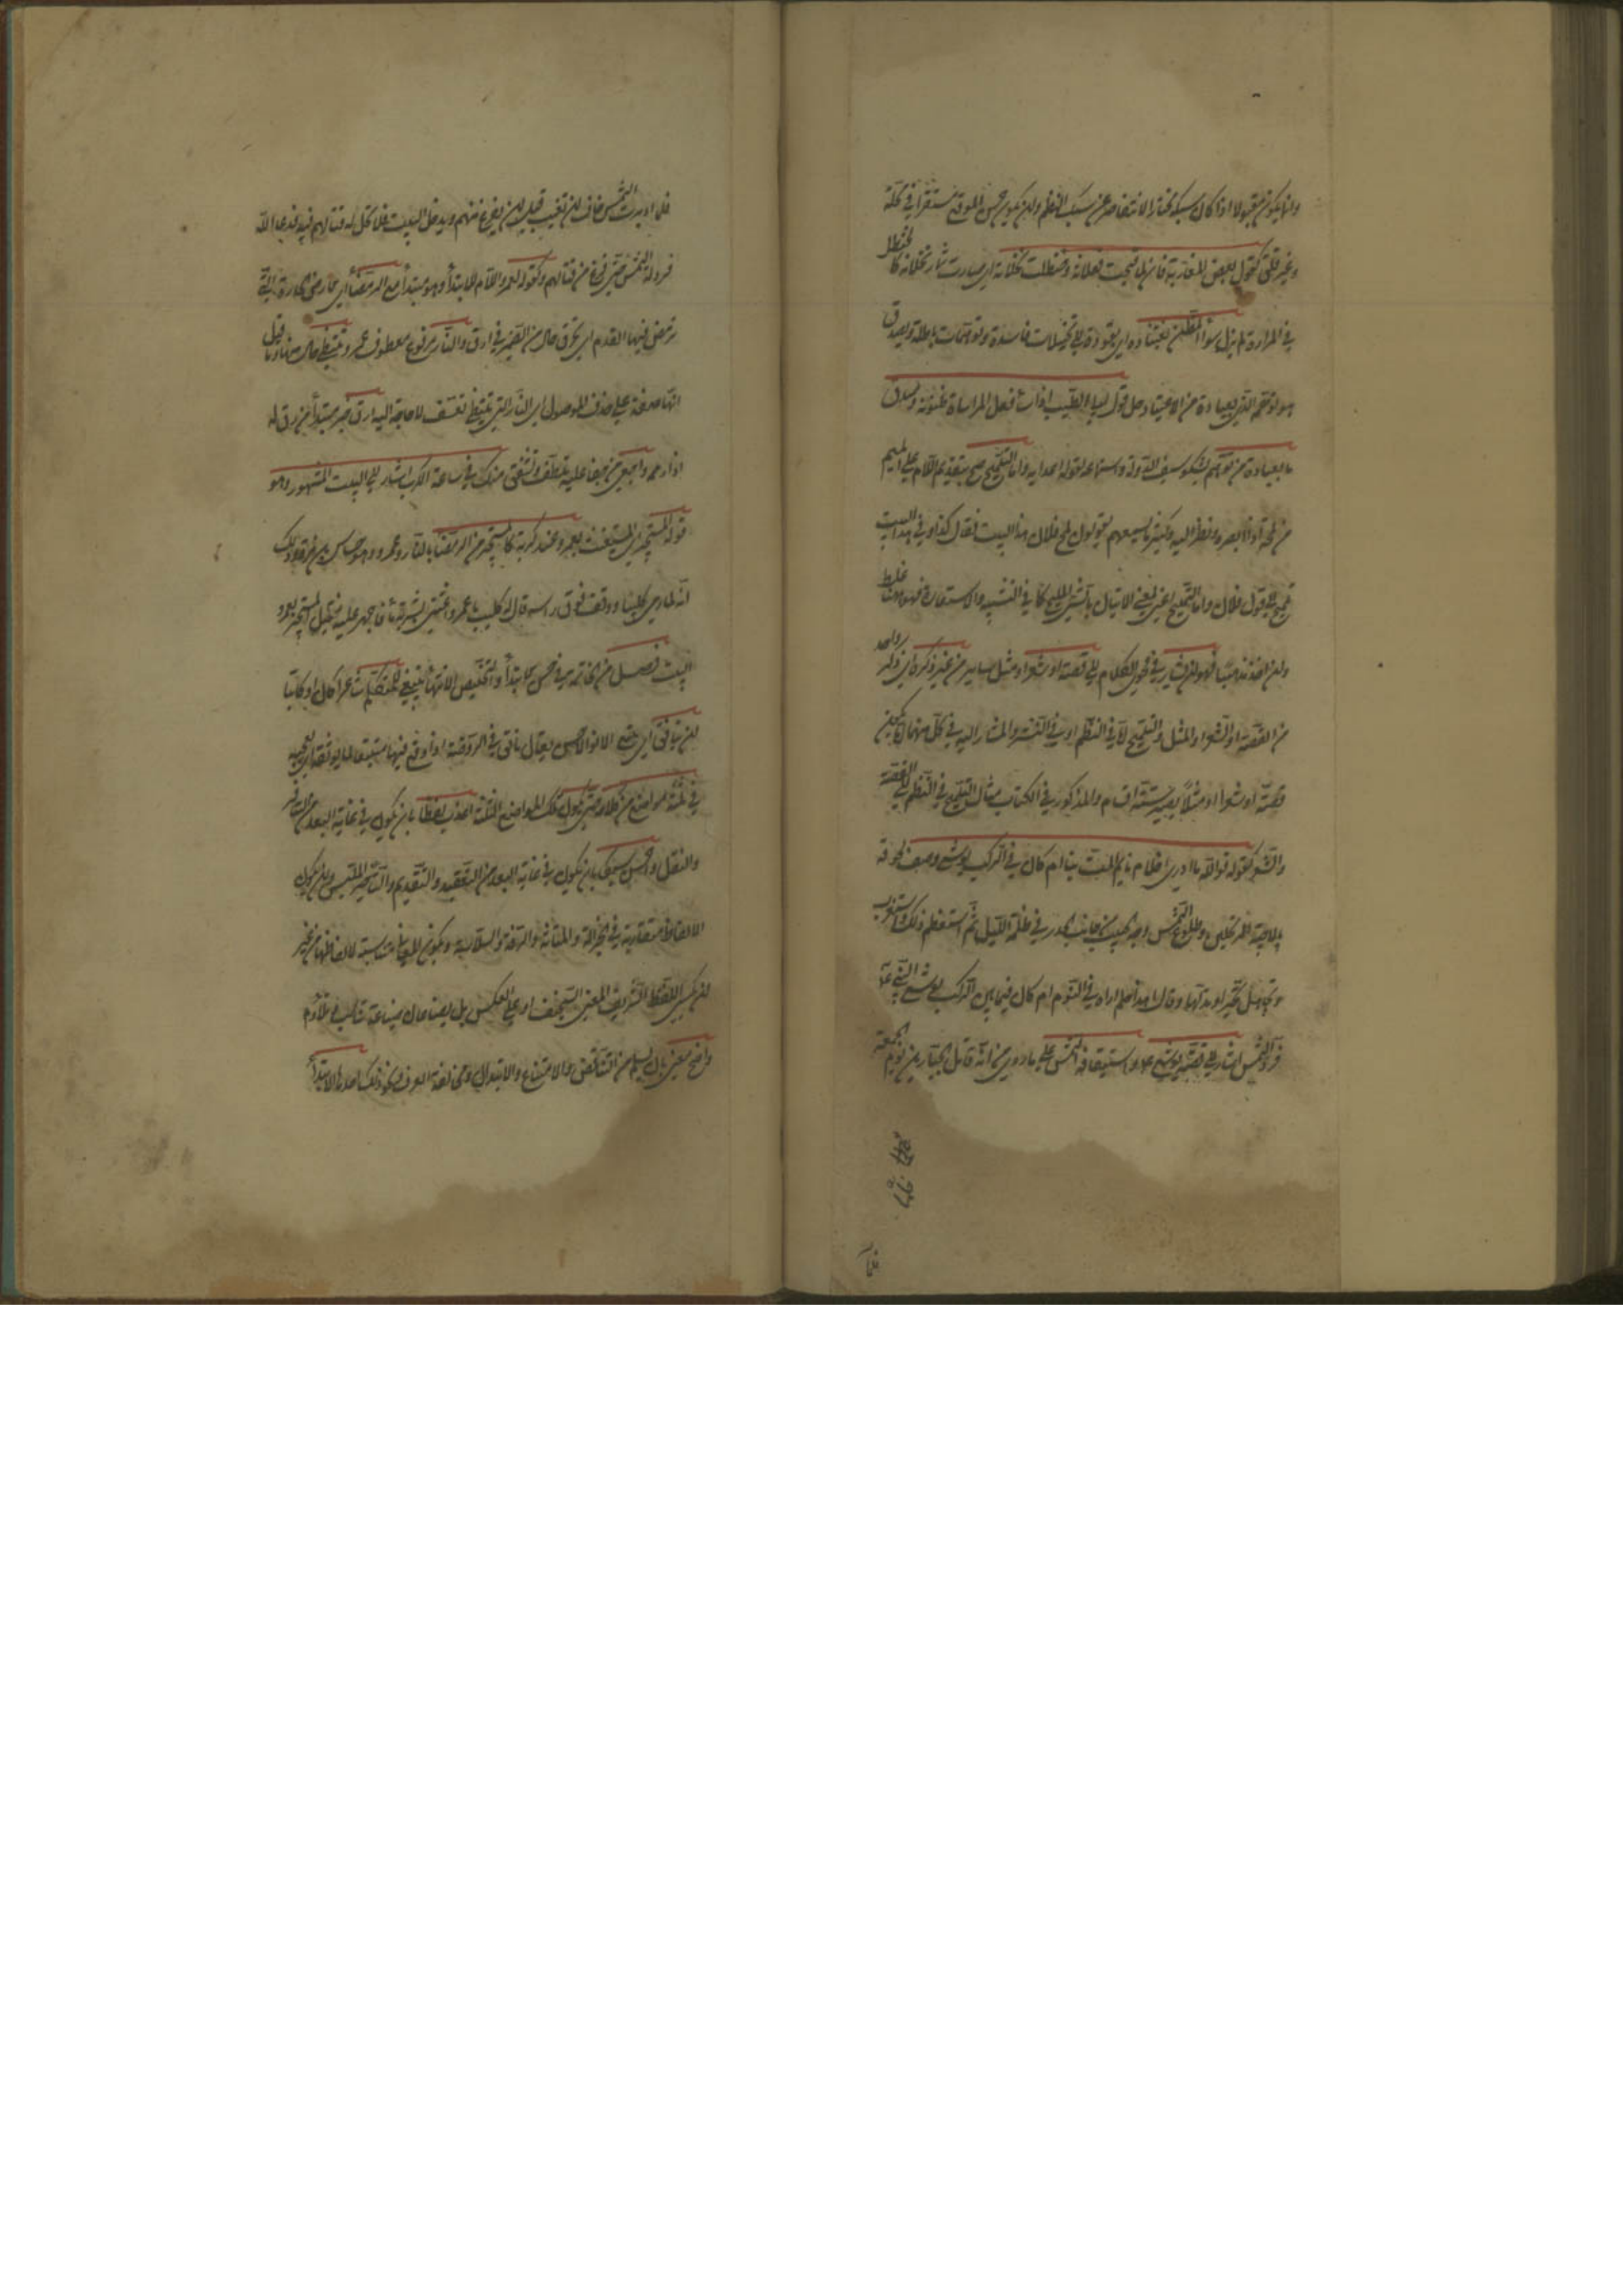 وانما يكون مقبولا اذا كان سبكه مختارا لا يتقاصر عن سبك النظم وان يكون حسن الموقع مستقرا في محله
وغير قلق كقول بعض المغاربة فانه لما قبحت فعلاته وحنظلت نخلاته اى صارت ثمار نخلاته كالحنظل
في المرارة لم يزل سوء الظن يقتاده اى يقوده الى تخيلات فاسدة وتوهمات باطلة ويصدق
هو توهمه الذى يعتاده من الاعتياد حل قول ابى الطيب اذا ساء فعل المرء ساءت ظنونه وصدق
ما يعتاده من توهم يشكو سيف الدولة واستماعه لقول اعدائه واما التلميح صح بتقديم اللام على الميم
من لمحه اذا ابصره ونظر اليه وكثيرا ما تسمعهم يقولون لمح فلان هذا البيت فقال كذا وفي هذا البيت
تلميح الى قول فلان واما التمليح اعنى بمعنى الاتيان بالشئ المليح كما في التشبيه والاستعارة فهو ههنا غلط
وان اخذ مذهبا فهو ان يشار في فحوى الكلام الى قصة او شعر او مثل سائر من غير ذكره اى ذكر واحد
من القصة او الشعر او المثل والتلميح اما في النظم او في النثر والمشار اليه في كل منهما اما ان يكون
قصة او شعرا او مثلا يصير ستة اقسام والمذكور في الكتاب مثال التلميح في النظم الى القصة
والشعر كقوله فوالله ما ادرى احلام نائم المت بنا ام كان في الركب يوشع وصف لحوقه
بالاحبة المرتحلين وطلوع الشمس وجه الحبيب من جانب الخدر في ظلمة الليل ثم استعظم ذلك واستغرب
وتجاهل تحيرا وتدلها وقال اهذا حلم اراه في النوم ام كان فيما بين الركب يوشع النبى عم
فرد الشمس اشار الى قصة يوشع عم واستيقافه الشمس على ما روى من انه قاتل الجبارين يوم الجمعة
فلما
فلما ادبرت الشمس خاف ان تغيب قبل ان يفرغ منهم ويدخل السبت فلا يحل له قتالهم فيه فدعا الله
فرد له الشمس حتى فرغ من قتالهم وكقوله لعمرو واللام للابتداء وهو مبتدأ مع الرمضاء اى الارض الحارة التى
ترمض فيها القدم اى تحرق حال من الضمير في ارق والنار مرفوع معطوف على عمرو وتلتظى حال منها وما قيل
انها صفة على حذف الموصول اى النار التى تلتظى تعسف لا حاجة اليه ارق خبر مبتدأ من رق له
اذا رحمه واحفى من حفى عليه تلطف وتشفق منك في ساعة الكرب اشار الى البيت المشهور وهو
قوله المستجير اى المستغيث بعمرو عند كربته كالمستجير من الرمضاء بالنار وعمرو هو جساس بن مرة وذلك
انه لما رمى كليبا ووقف فوق راسه قال له كليب يا عمرو اغثنى بشربة ماء فاجهز عليه فقيل المستجير بعمرو
البيت فصل من الخاتمة في حسن الابتداء والتخلص والانتهاء ينبغى للمتكلم شاعرا كان او كاتبا
ان يتأنق اى يتتبع الآنق والاحسن يقال تأنق في الروضة اذا وقع فيها متتبعا لما يونقه اى يعجبه
في ثلثة مواضع من كلامه حتى يكون تلك المواضع الثلثة اعذب لفظا بان يكون في غاية البعد عن التنافر
والثقل واحسن سبكا بان يكون في غاية البعد من التعقيد والتقديم والتأخير الملتبس وان يكون
الالفاظ متقاربة في الجزالة والمتانة والرقة والسلاسة ويكون المعانى مناسبة لالفاظها من غير
ان يكسى اللفظ الشريف المعنى السخيف او على العكس بل يصاغان صياغة تناسب وتلاؤم
واصح معنى بان يسلم من التناقض والامتناع والابتذال ومخالفة العرف ونحو ذلك احدها الابتداء